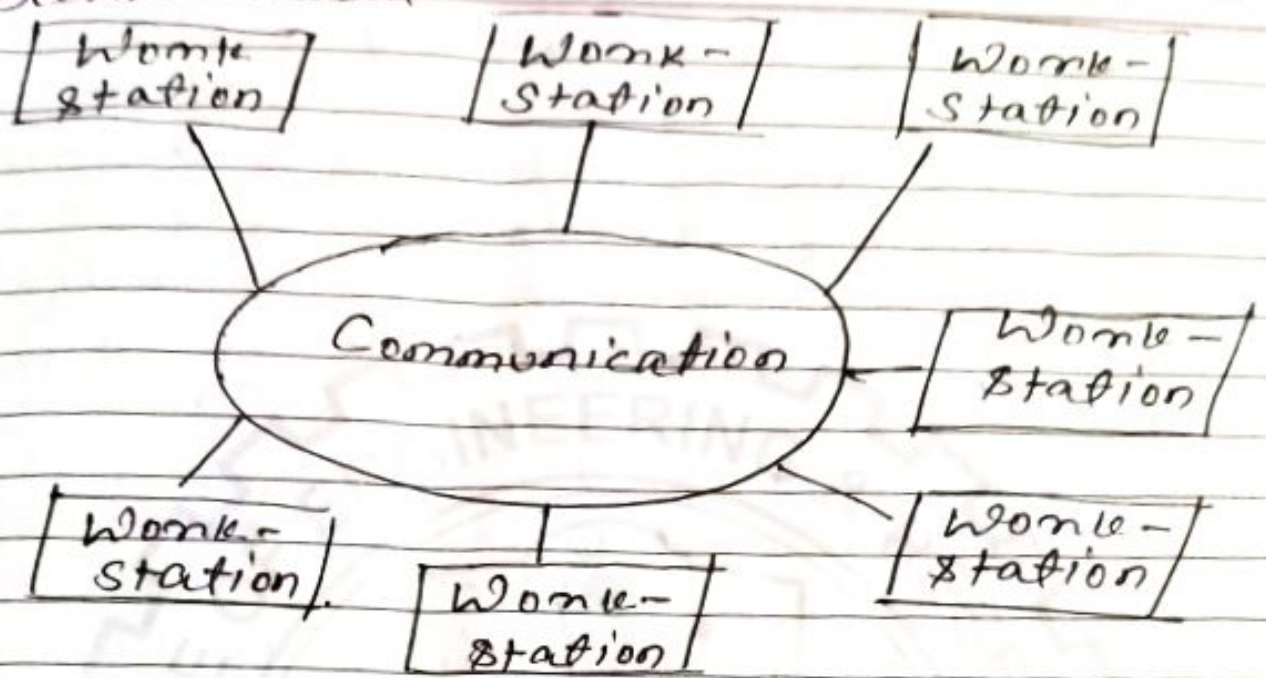 Work
station
Work-
station
Work-
station
Communication
Work-
station
Work-
station
Work-
station
Work-
station
INEERIN